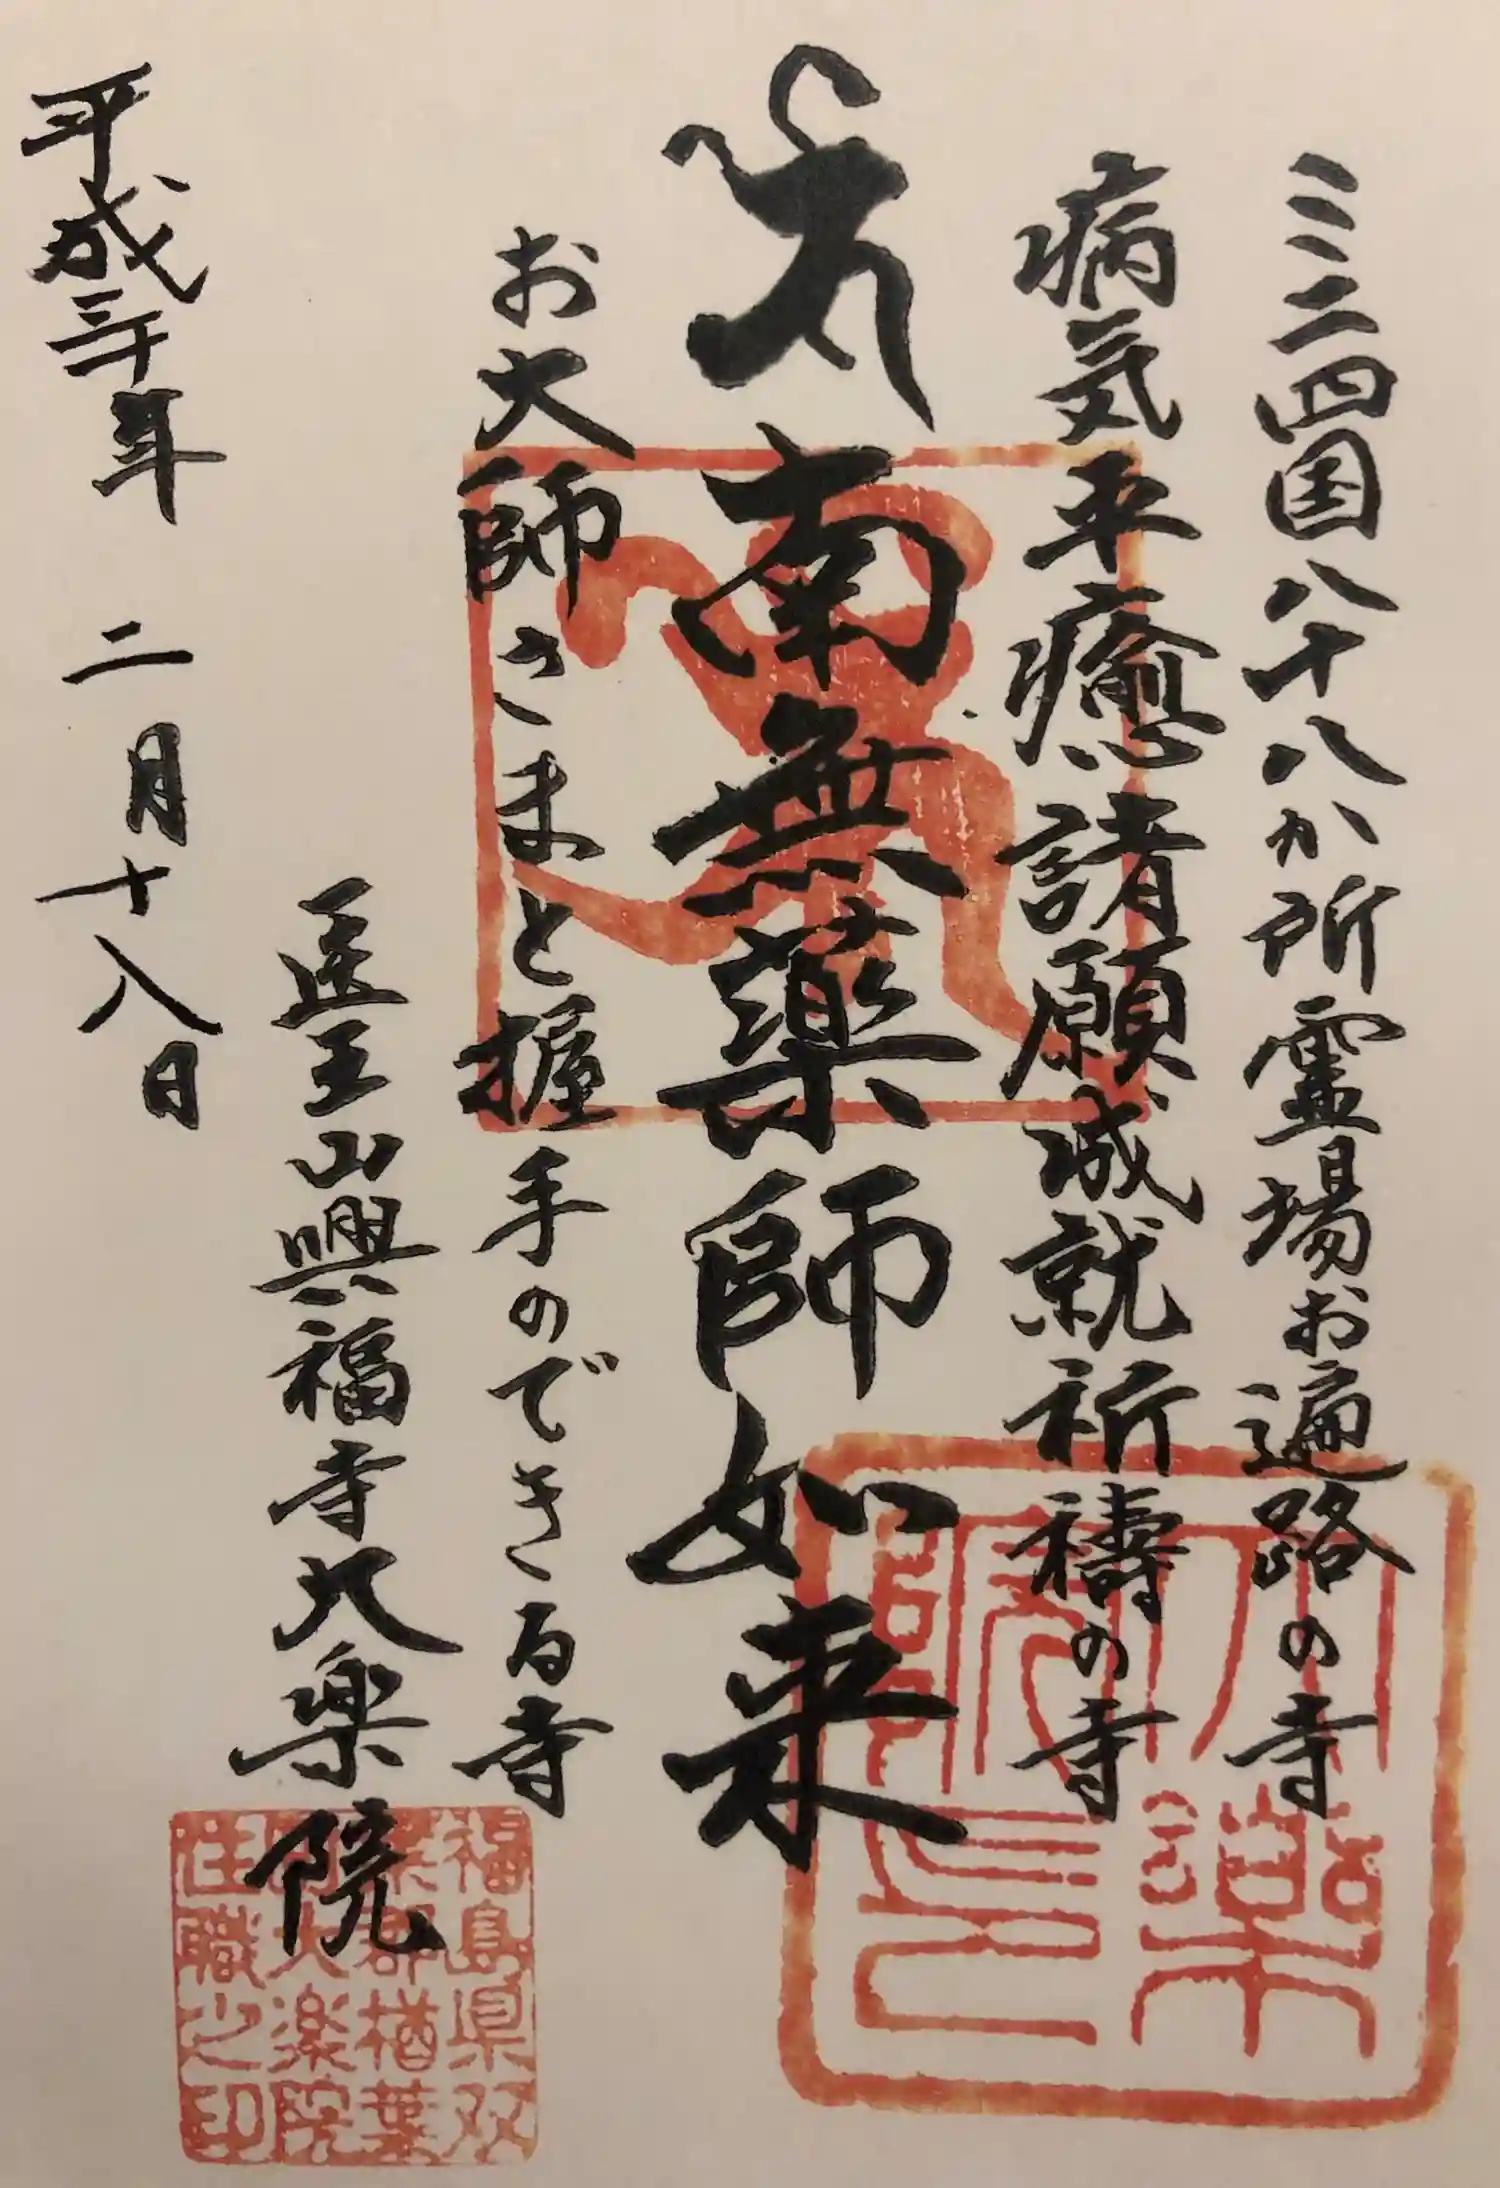 ミニ四国八十八か所霊場お遍路の寺
病気平癒諸願成就祈祷の寺
南無薬師如来
お大師さまと握手のできる寺
医王山興福寺大楽院
平成三十年 二月十八日
大楽院印
福島県双
葉郡楢葉
町大楽院
住職之印